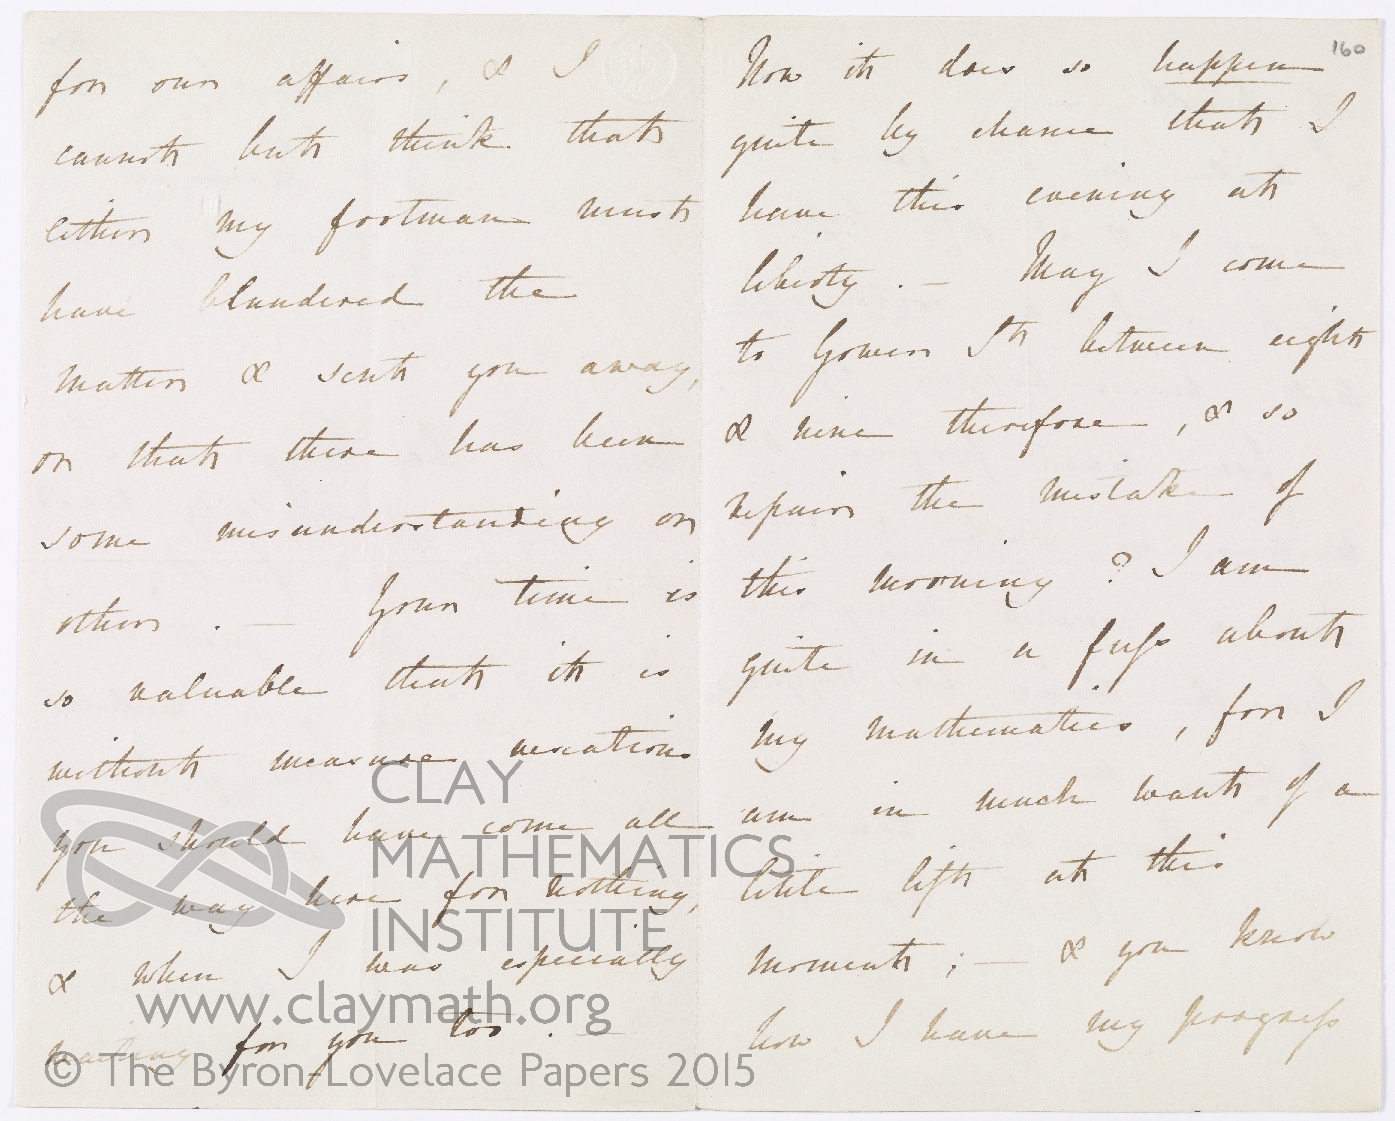 for our affairs, & I
cannot but think that
either my footman must
have blundered the
matter & sent you away,
or that there has been
some misunderstanding or
other. — Your time is
so valuable that it is
without measure vexatious
you should have come all
the way here for nothing,
& when I was especially
waiting for you too. —
160
Now it does so happen
quite by chance that I
have this evening at
liberty. — May I come
to Gower St between eight
& nine therefore, & so
repair the mistake of
this morning? I am
quite in a fuss about
my mathematics, for I
am in much want of a
little lift at this
moment; — & you know
how I have my progress
CLAY
MATHEMATICS
INSTITUTE
www.claymath.org
© The Byron-Lovelace Papers 2015